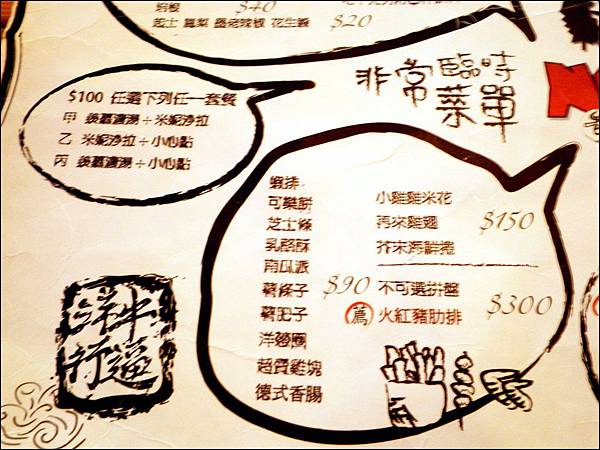 $40
起士 鳳梨 墨西哥辣椒 花生醬 $20
非常臨時
菜單
$100 任選下列任一套餐
甲 蘑菇濃湯÷米妮沙拉
乙 米妮沙拉÷小心點
丙 蘑菇濃湯÷小心點
蝦排
可樂餅
芝士條
乳酪酥
南瓜派
薯條子
薯肥子
洋蔥圈
超質雞塊
德式香腸
$90
小雞雞米花
再來雞翅
芥末海鮮捲
$150
不可選拼盤
薦 火紅豬肋排
$300